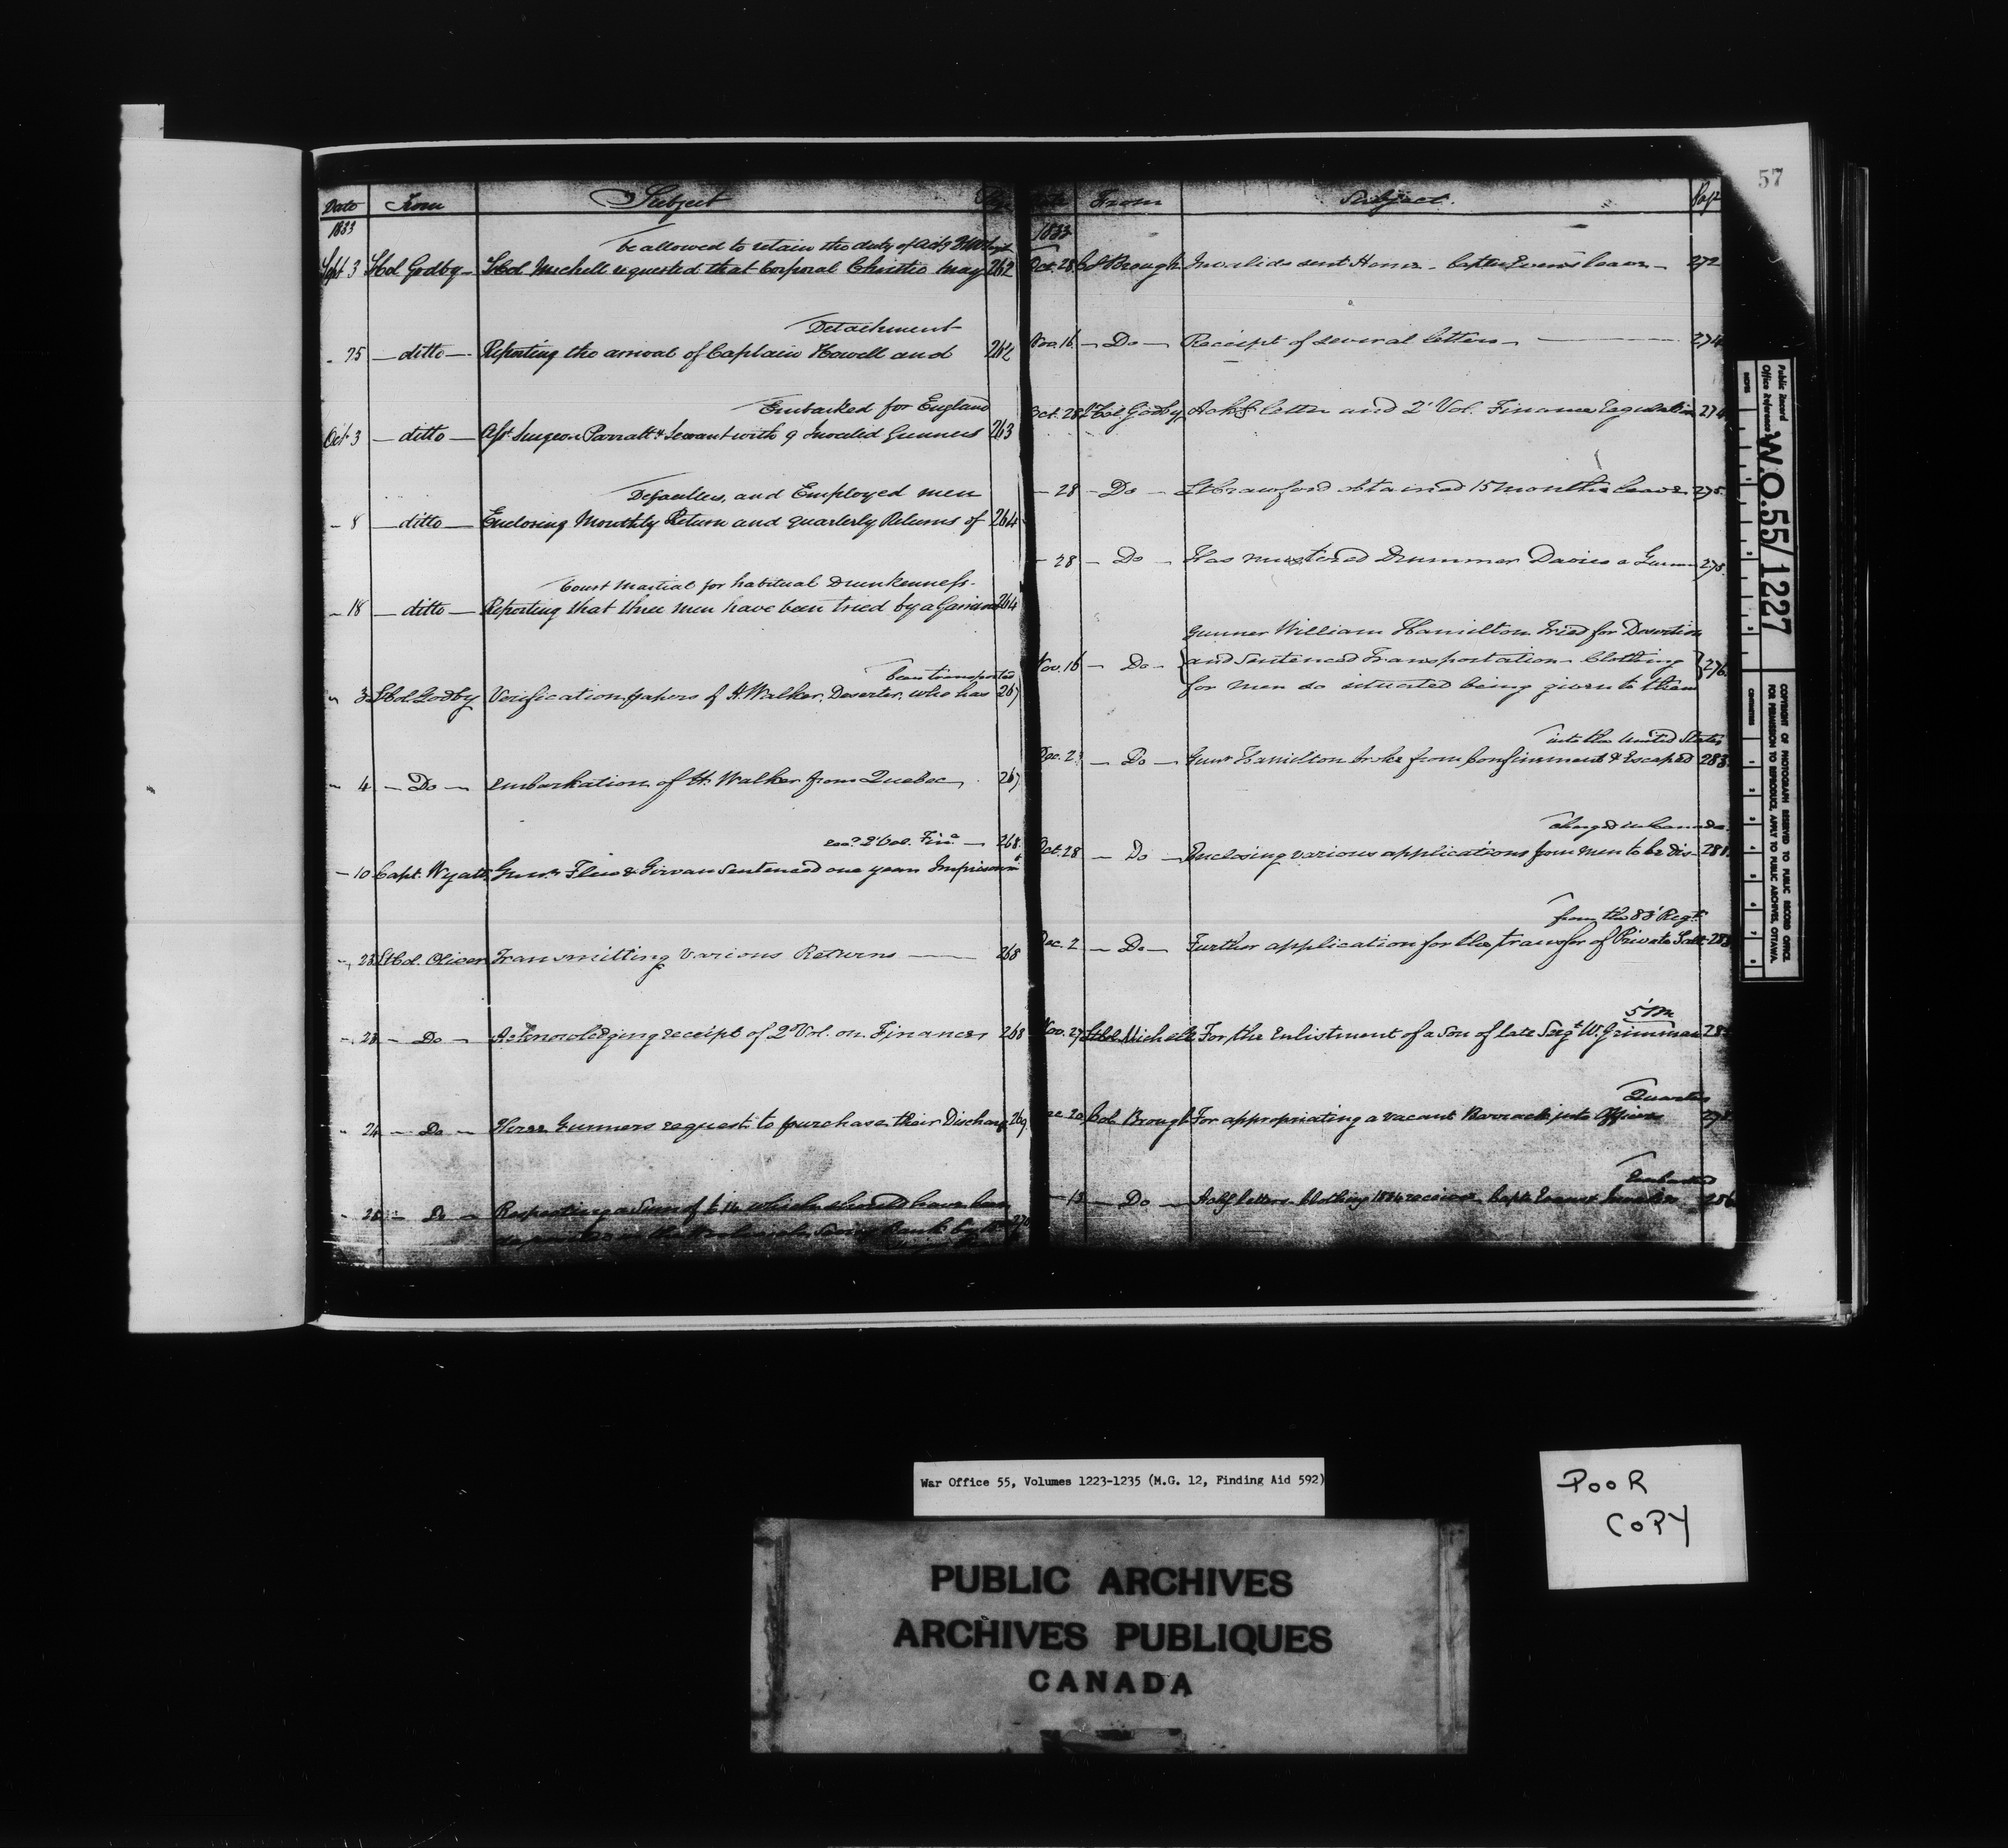 57
Date From Subject
1833
be allowed to retain the duty of
Sept. 3 Lt Col Godby - Lt Col Mechell requested that Corporal Christie may 262
Detachment
- 25 - ditto - Reporting the arrival of Captain Howell and 262
Embarked for England
Oct. 3 - ditto - Asst Surgeon Parratt & Servant with 9 Invalid Gunners 263
Defaulters, and Employed men
- 8 - ditto - Enclosing Monthly Return and quarterly Returns of 264
Court Martial for habitual Drunkenness.
- 18 - ditto - Reporting that three men have been tried by a Garrison 264
been transported
" 3 Lt Col. Godby Verification papers of H. Walker, Deserter, who has 267
" 4 - Do - Embarkation of H. Walker from Quebec 267
2d Vol. Fin. - 268
- 10 Capt. Wyatt Gunrs & Girvan Sentenced one years Imprisonmt
- 23 Lt Col. Oliver Transmitting various Returns 268
- 23 - Do - Acknowledging receipt of 2d Vol. on Finances 268
- 24 - Do - Three Gunners request to purchase their Discharge 269
- 28 - Do - Respecting a Sum of which should have been
From Subject. Page
1833
Oct. 28 Brough Invalids sent Home - Capten Evans leave - 272
Nov. 16 - Do - Receipt of several letters - 274
Oct. 28 Lt Col Godby Ackg letter and 2d Vol. Finance Regulation 274
- 28 - Do - Lt Crawford obtained 15 months leave 275
- 28 - Do - Has mustered Drummer Davies a Gunner 275
Gunner William Hamilton tried for Desertion
Nov. 16 - Do - and Sentenced Transportation - Clothing 276
for men so situated being given to them
into the United States
Dec. 2 - Do - Gunr Hamilton broke from Confinement & Escaped 283
charged in Canada.
Oct. 28 - Do - Enclosing various applications from men to be dis- 281
from the 83d Regt
Dec. 2 - Do - Further application for the transfer of Private
Nov. 27 Lt Col. Michell For the Enlistment of a Son of late Sergt W. Grimman
Quarters
Dec. 20 Col. Brough For appropriating a vacant Barrack into Officers
Embarked
- 13 - Do - Ackg letters - Clothing 1834 received - Capt. Evans & Invalids 286
Public Record
Office Reference
W.O.55/1227
INCHES
CENTIMETRES
COPYRIGHT OF PHOTOGRAPH RESERVED TO PUBLIC RECORD OFFICE
FOR PERMISSION TO REPRODUCE, APPLY TO PUBLIC ARCHIVES, OTTAWA
War Office 55, Volumes 1223-1235 (M.G. 12, Finding Aid 592)
POOR
COPY
PUBLIC ARCHIVES
ARCHIVES PUBLIQUES
CANADA